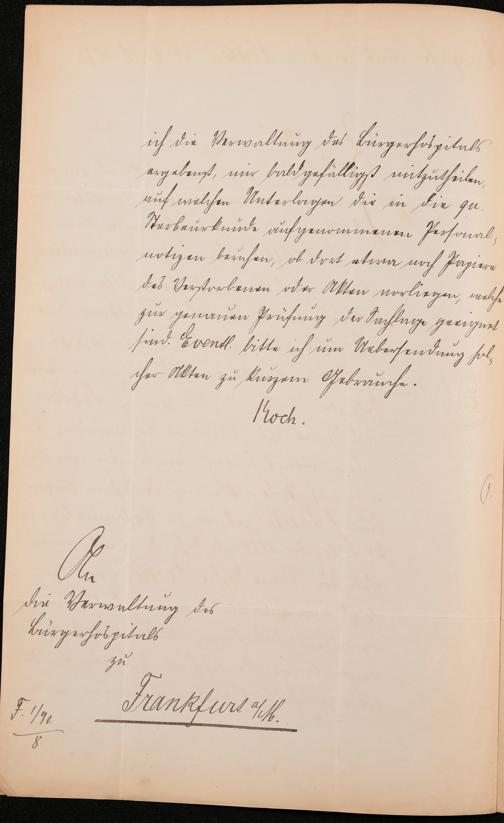 ich die Verwaltung des Bürgerhospitals
ergebenst, mir baldgefälligst mitzutheilen,
auf welchen Unterlagen die in die qu.
Sterbeurkunde aufgenommenen Personal-
notizen beruhen, ob dort etwa noch Papiere
des Verstorbenen oder Akten vorliegen, welche
zur genauen Prüfung der Sachlage geeignet
sind. Eventl. bitte ich um Uebersendung sol-
cher Akten zu kurzem Gebrauche.
Koch.
An
die Verwaltung des
Bürgerhospitals
zu
Frankfurt a/M.
F. 1/90
8